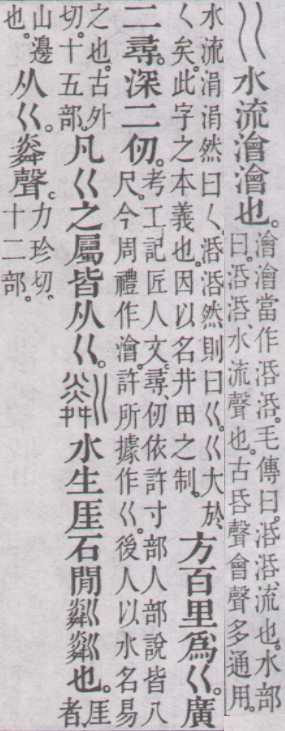 巜 水流澮澮也。
澮澮當作𣴠𣴠。毛傳曰。𣴠𣴠、流也。水部
曰。𣴠𣴠、水流聲也。古昏聲會聲多通用。
水流涓涓然曰𡿨、𣴠𣴠然則曰巜。巜大於
𡿨矣。此字之本義也。因以名井田之制。
方百里爲巜。廣
二尋。深二仞。
考工記匠人文。尋、仞依許寸部人部說皆八
尺。今周禮作澮。許所據作巜。後人以水名易
之也。古外
切。十五部。
凡巜之屬皆从巜。
粼 水生厓石閒粼粼也。
厓
者、
山邊
也。
从巜。㷠聲。
力珍切。
十二部。